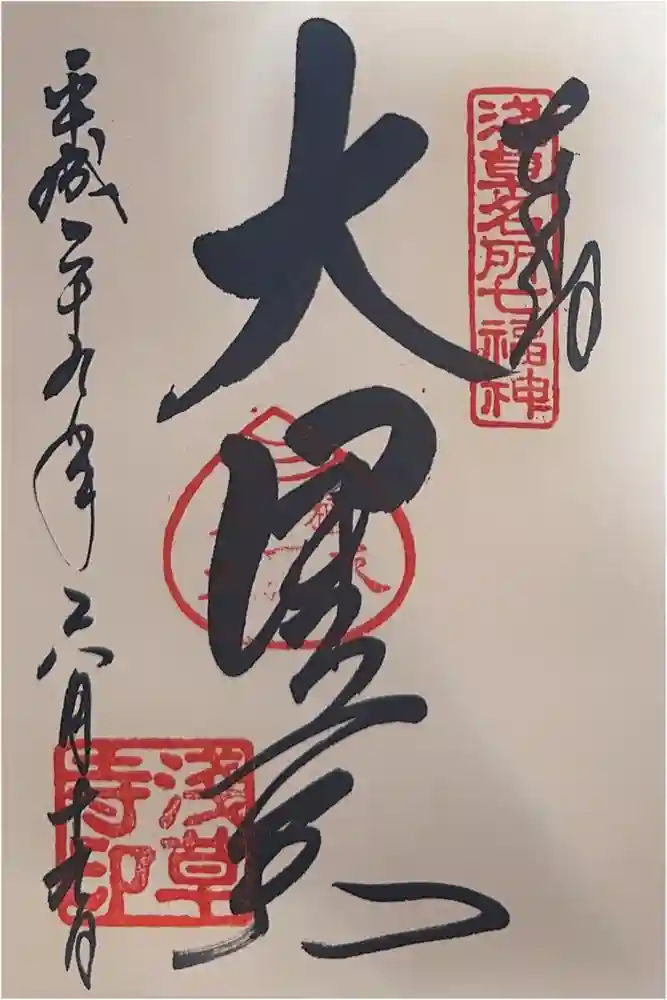 奉拝
浅草名所七福神
大黒天
平成二十九年
八月十九日
浅草
寺印